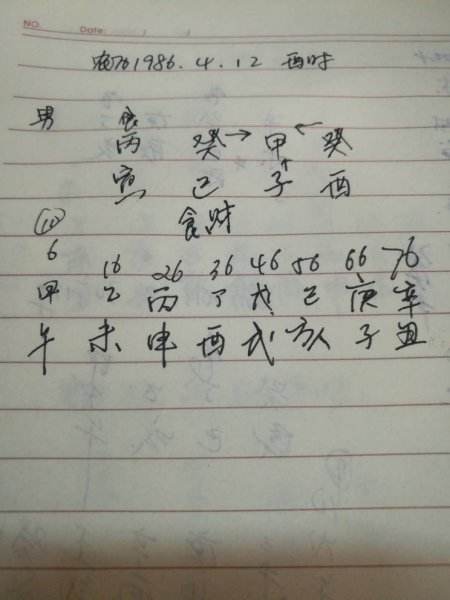 NO. Date:
农历1986.4.12 酉时
男 食
丙 癸→甲←癸
寅 巳 子 酉
食财
6 16 26 36 46 56 66 76
甲 乙 丙 丁 戊 己 庚 辛
午 未 申 酉 戌 亥 子 丑